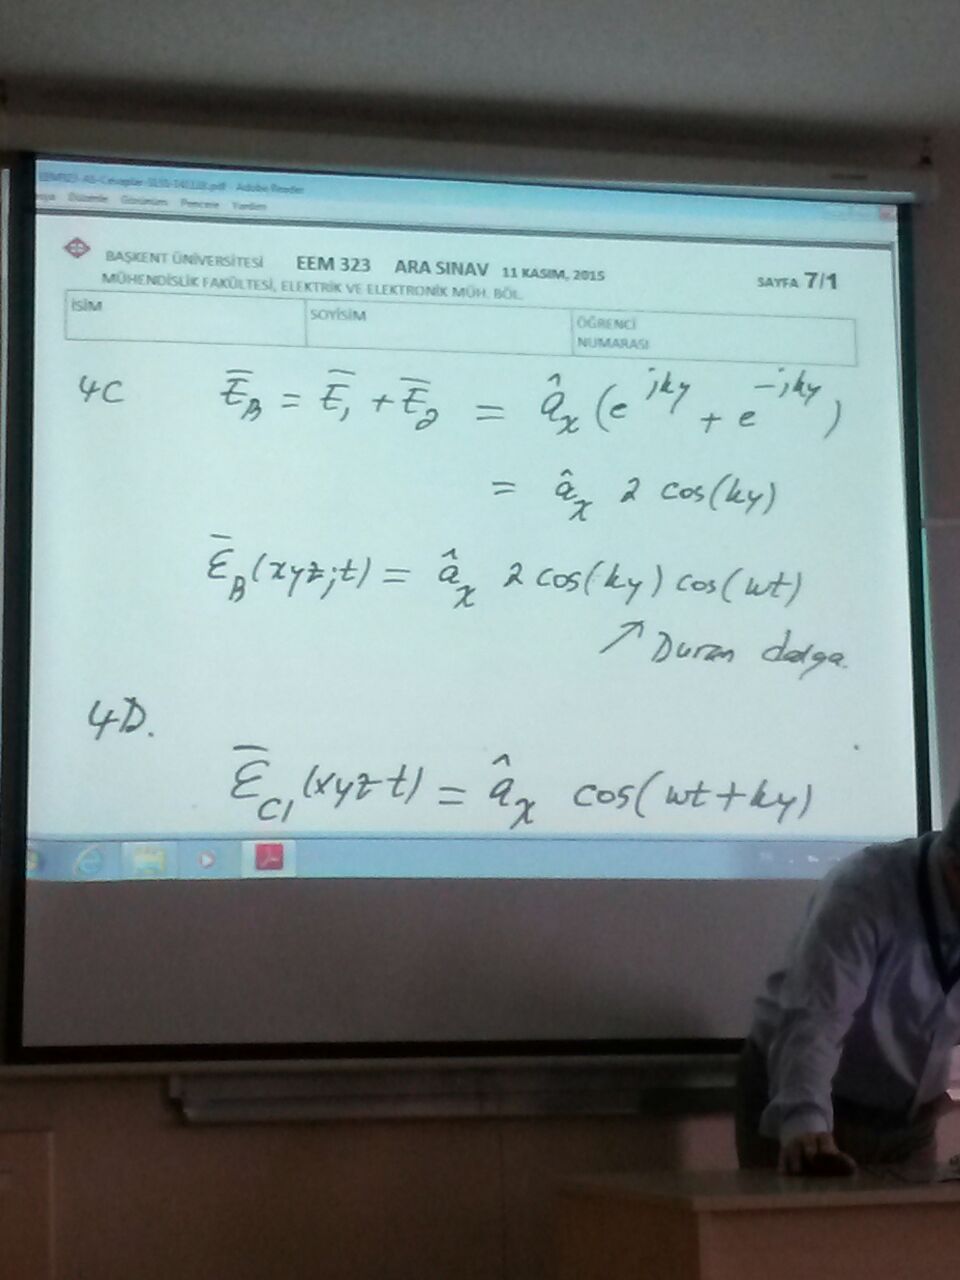 Adobe Reader
Düzenle Görünüm Pencere Yardım
BAŞKENT ÜNİVERSİTESİ EEM 323 ARA SINAV 11 KASIM, 2015 SAYFA 7/1
MÜHENDİSLİK FAKÜLTESİ, ELEKTRİK VE ELEKTRONİK MÜH. BÖL.
İSİM SOYİSİM ÖĞRENCİ
NUMARASI
4C E̅_B = E̅_1 + E̅_2 = â_x (e^{jky} + e^{-jky})
= â_x 2 cos(ky)
ℰ̅_B(xyz;t) = â_x 2 cos(ky) cos(wt)
↗ Duran dalga.
4D.
ℰ̅_C1(xyzt) = â_x cos(wt+ky)